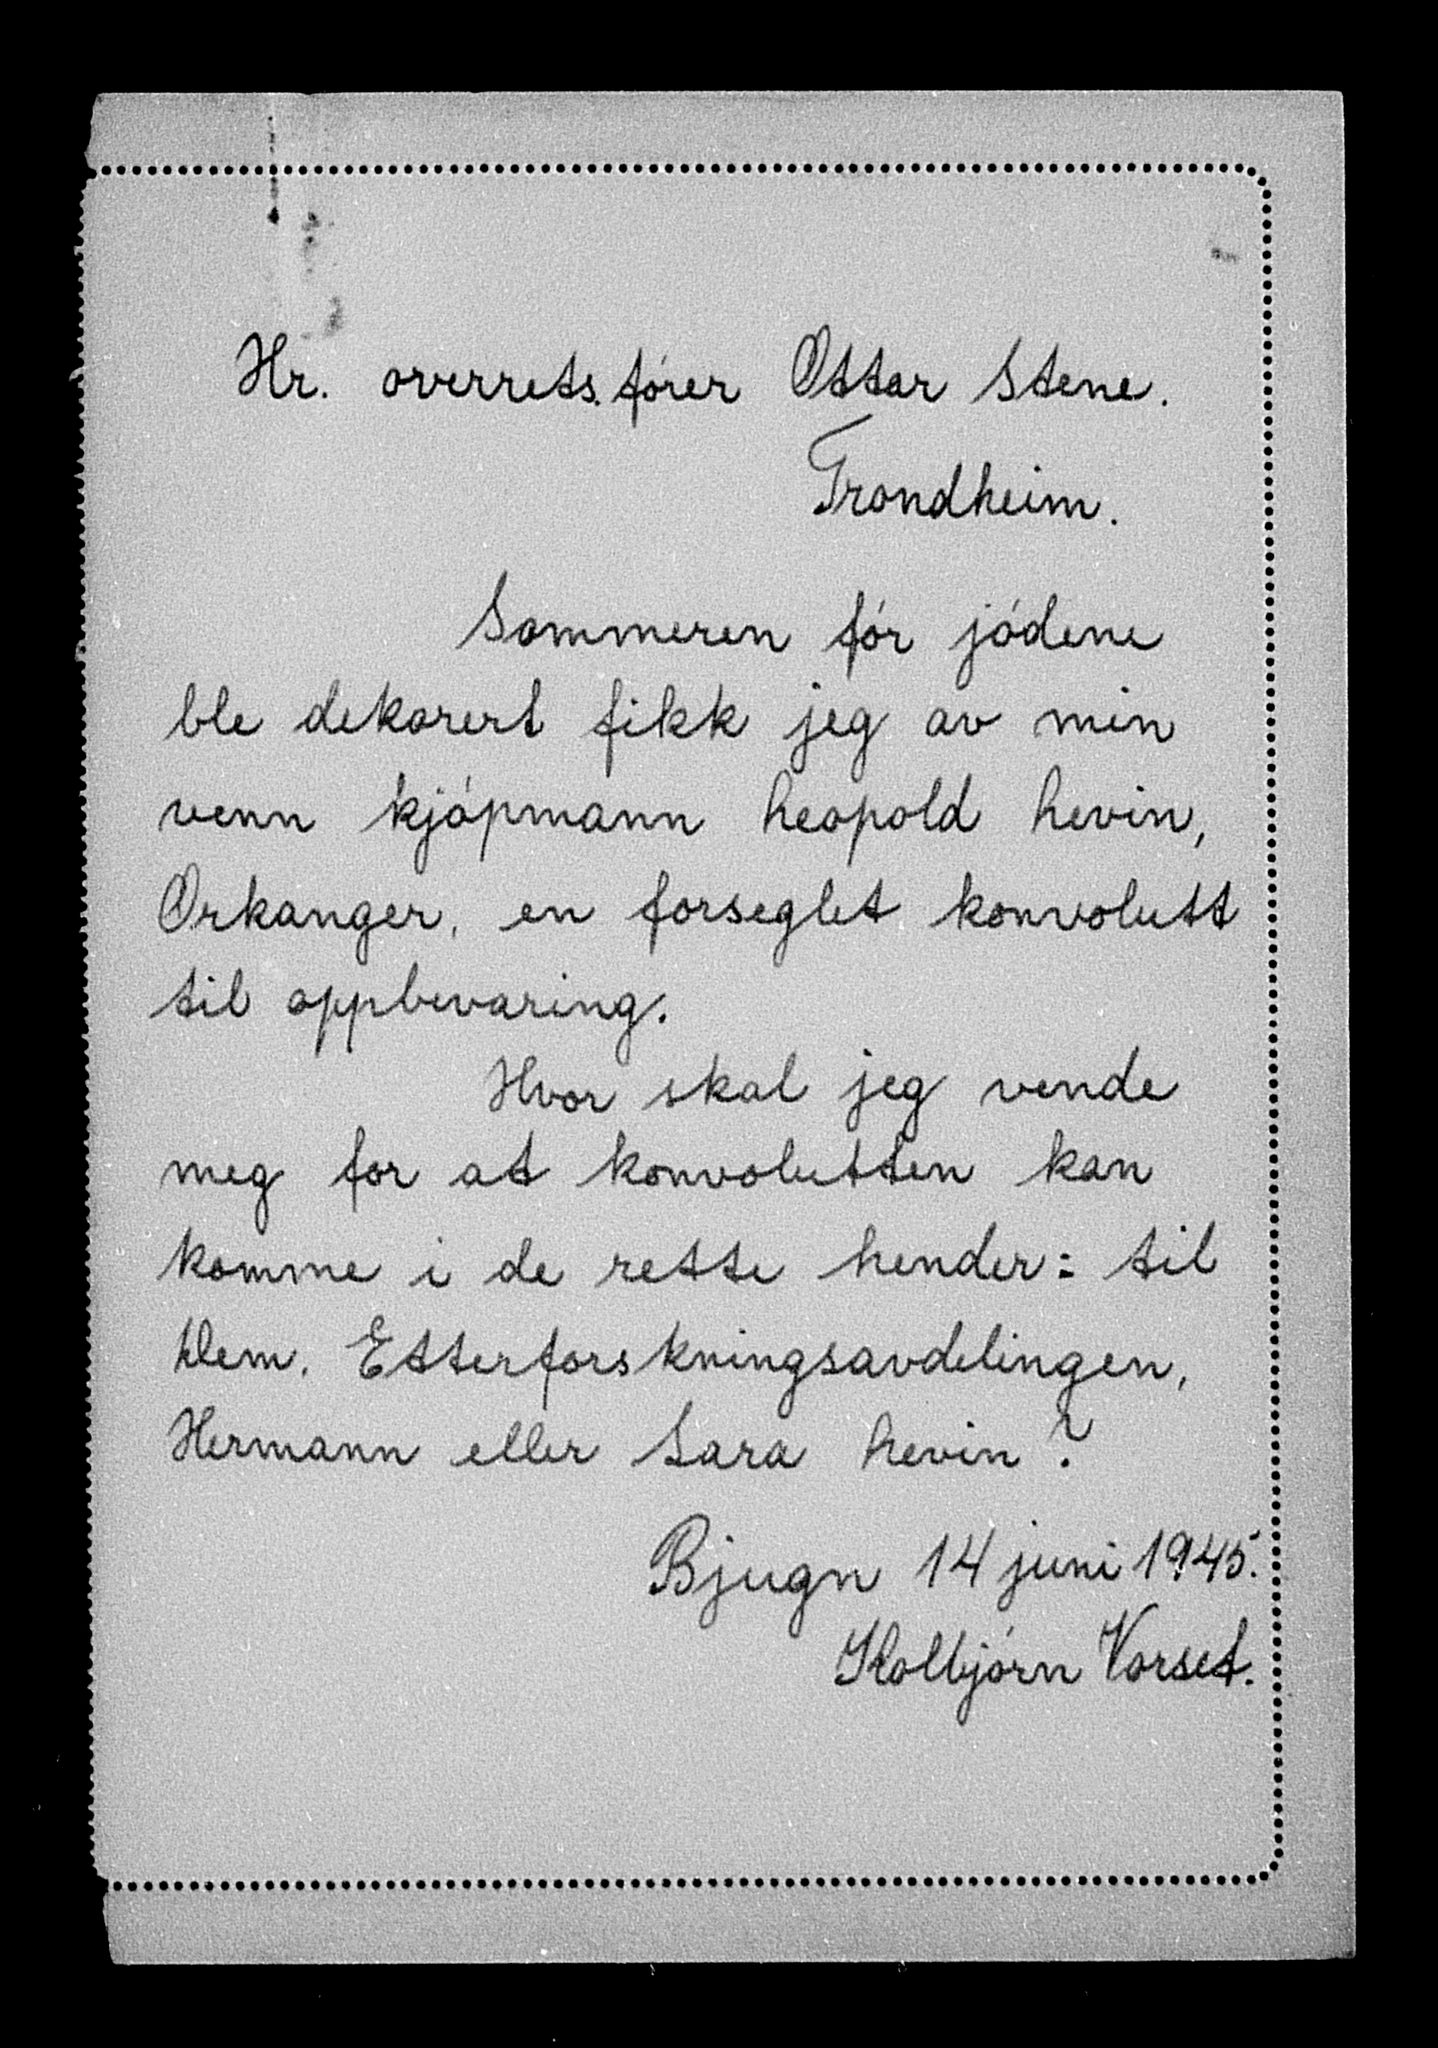 Hr. overrets.fører Ottar Stene.
Trondheim.
Sommeren før jødene
ble dekorert fikk jeg av min
venn kjøpmann Leopold Levin,
Orkanger, en forseglet konvolutt
til oppbevaring.
Hvor skal jeg vende
meg for at konvolutten kan
komme i de rette hender: til
Etterforskningsavdelingen,
Hermann eller Sara Levin?
Bjugn 14 juni 1945.
Kolbjørn Vorset.